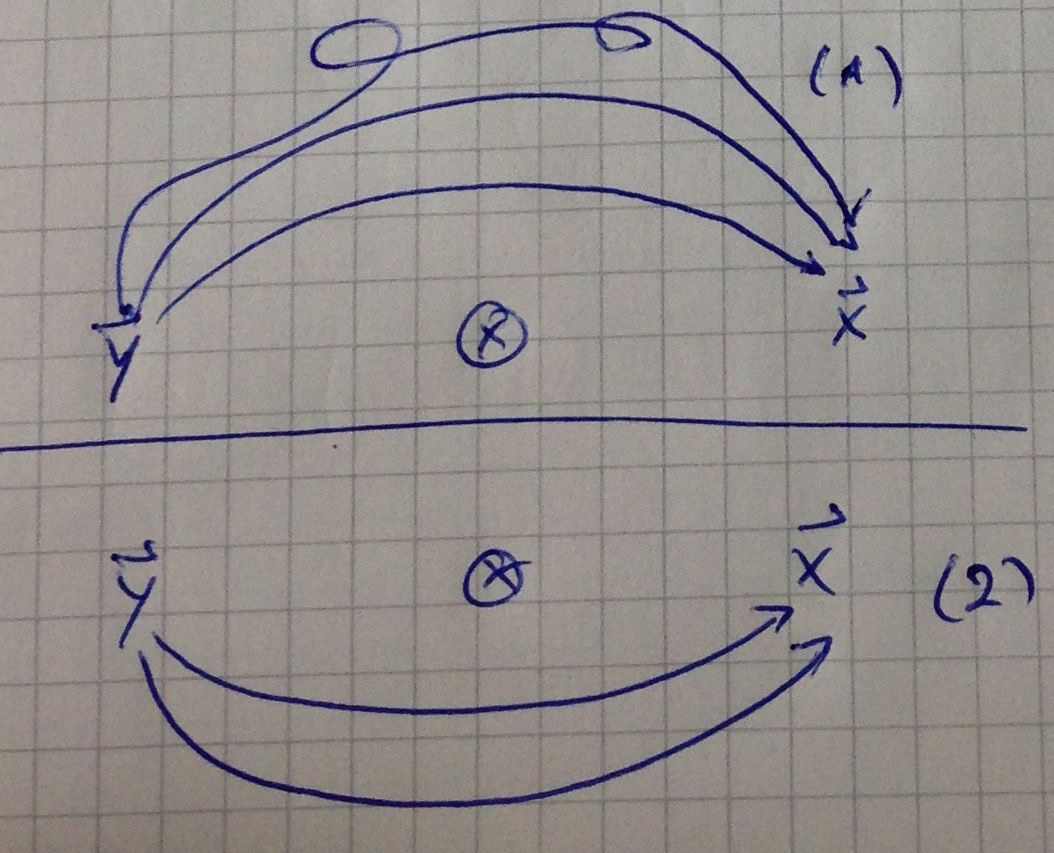 (1)
⊗
y⃗ x⃗
y⃗ ⊗ x⃗
(2)